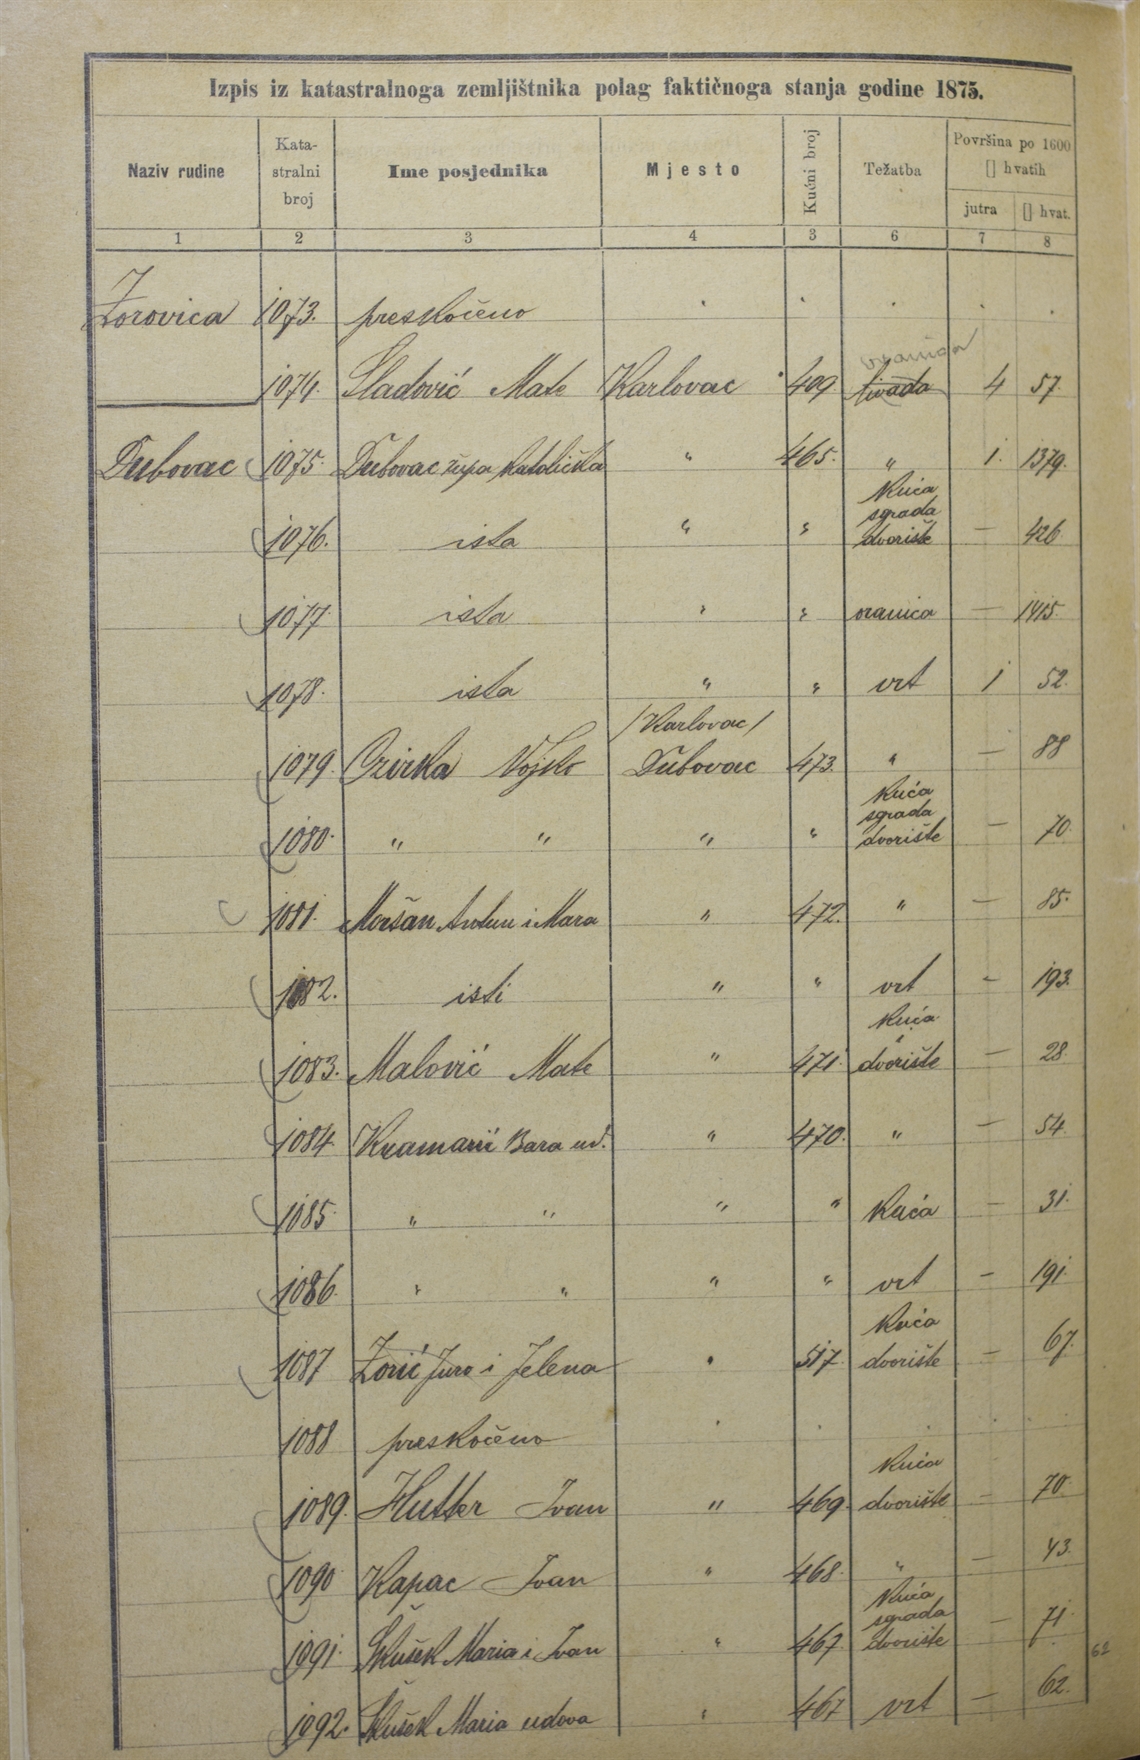 Izpis iz katastralnoga zemljištnika polag faktičnoga stanja godine 1875.
Naziv rudine Kata-stralni broj Ime posjednika Mjesto Kućni broj Težatba Površina po 1600 [] hvatih
jutra [] hvat.
1 2 3 4 3 6 7 8
Zorovica 1073. preskočeno
oranica
1074. Sladović Mate Karlovac 409 livada 4 57.
Dubovac 1075. Dubovac župa katolička " 465. " 1. 1379.
Kuća
sgrada
1076. ista " " dvorište — 426.
1077. ista " " oranica — 1415.
1078. ista " " vrt 1 52.
/Karlovac/
1079. Ozirka Vojsko Dubovac 473. " — 88
Kuća
sgrada
1080. " " " " dvorište — 70.
1081. Moršan Antun i Mara " 472. " — 85.
1082. isti " " vrt — 193.
Kuća
1083. Malović Mate " 471. dvorište — 28.
1084. Kramarić Bara ud. " 470. " — 54.
1085. " " " " Kuća — 31.
1086. " " " " vrt — 191.
Kuća
1087 Zorić Juro i Jelena " 517. dvorište — 67.
1088 preskočeno
Kuća
1089. Hutter Ivan " 469. dvorište — 70.
1090 Kapac Ivan " 468. " — 43.
Kuća
sgrada
1091. Škušek Maria i Ivan " 467. dvorište — 71.
62
1092. Škušek Maria udova " 467 vrt — 62.